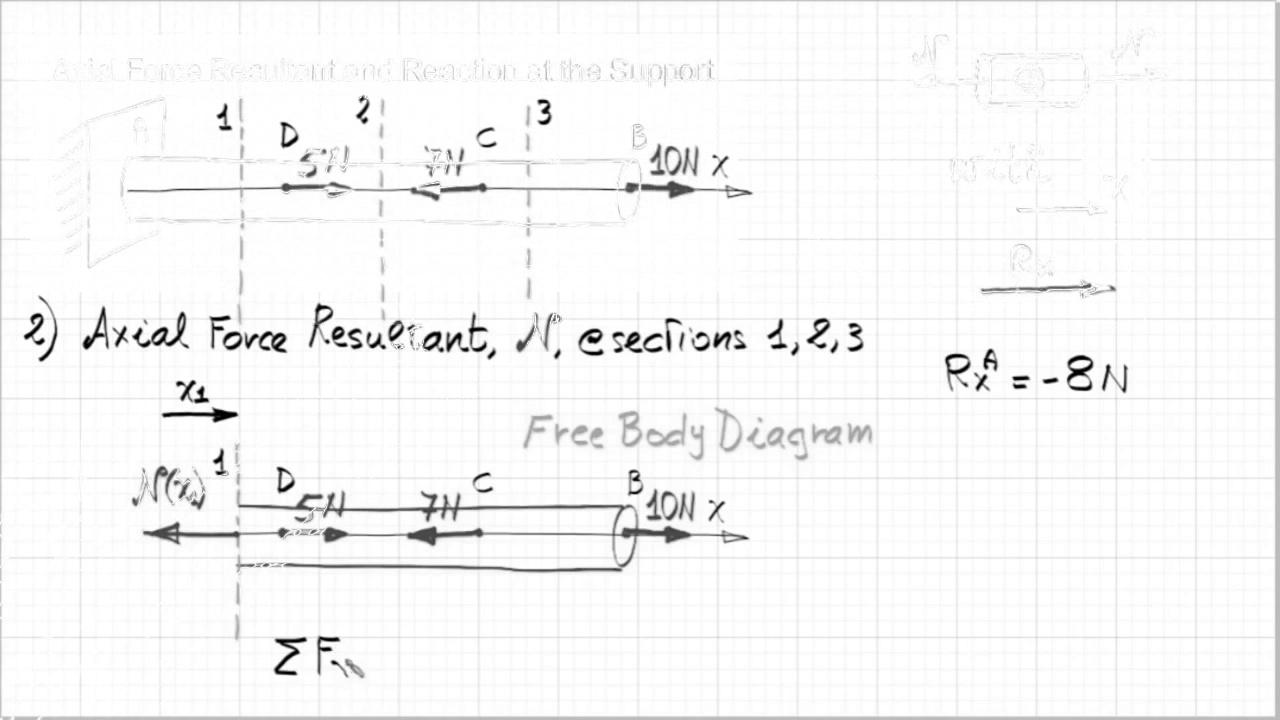 Axial Force Resultant and Reaction at the Support
N N
1 2 3
A D 5N 7N C B 10N x
with
x
Rx
2) Axial Force Resultant, N, @sections 1,2,3
RxA = -8N
x1
Free Body Diagram
N(x1) 1 D 5N 7N C B 10N x
ΣF